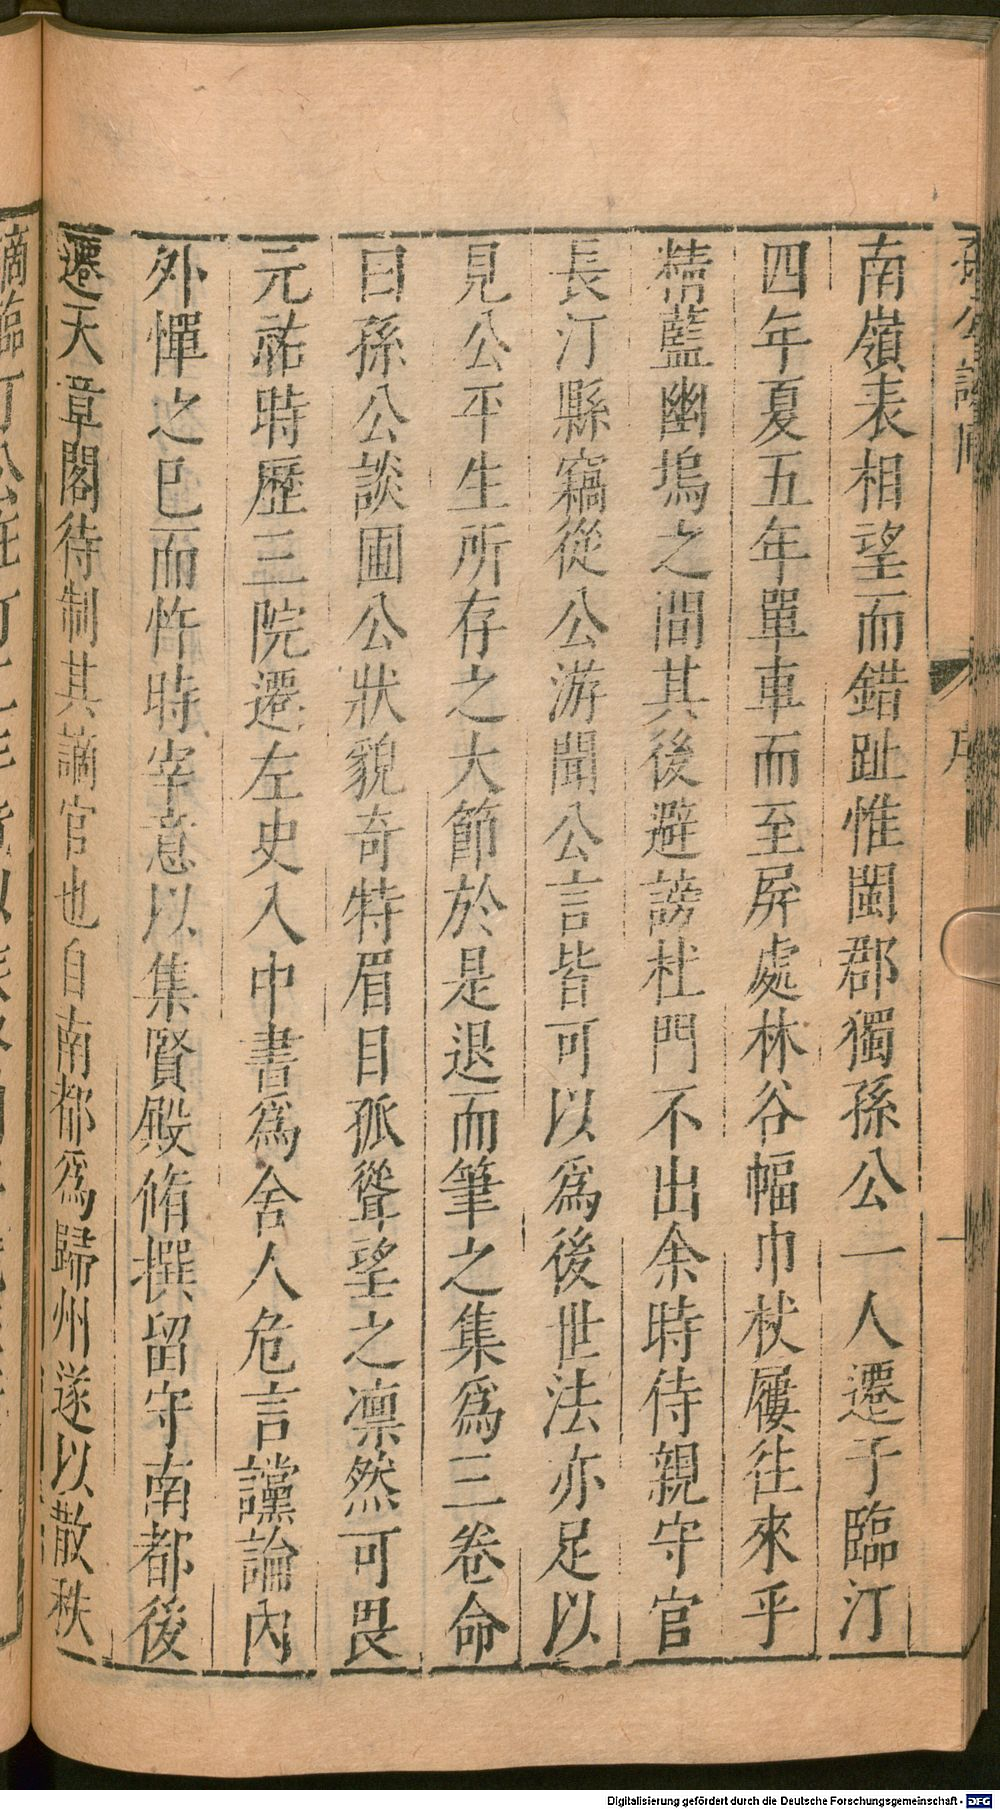 孫公談圃 序 一
南嶺表相望而錯趾惟閩郡獨孫公一人遷于臨汀
四年夏五年單車而至屏處林谷幅巾杖屨往來乎
精藍幽塢之間其後避謗杜門不出余時侍親守官
長汀縣竊從公游聞公言皆可以為後世法亦足以
見公平生所存之大節於是退而筆之集為三卷命
曰孫公談圃公狀貌奇特眉目孤聳望之凛然可畏
元祐時歷三院遷左史入中書為舍人危言讜論內
外憚之已而忤時宰意以集賢殿脩撰留守南都後
遷天章閣待制其謫官也自南都為歸州遂以散秩
謫臨汀公在汀
Digitalisierung gefördert durch die Deutsche Forschungsgemeinschaft - DFG